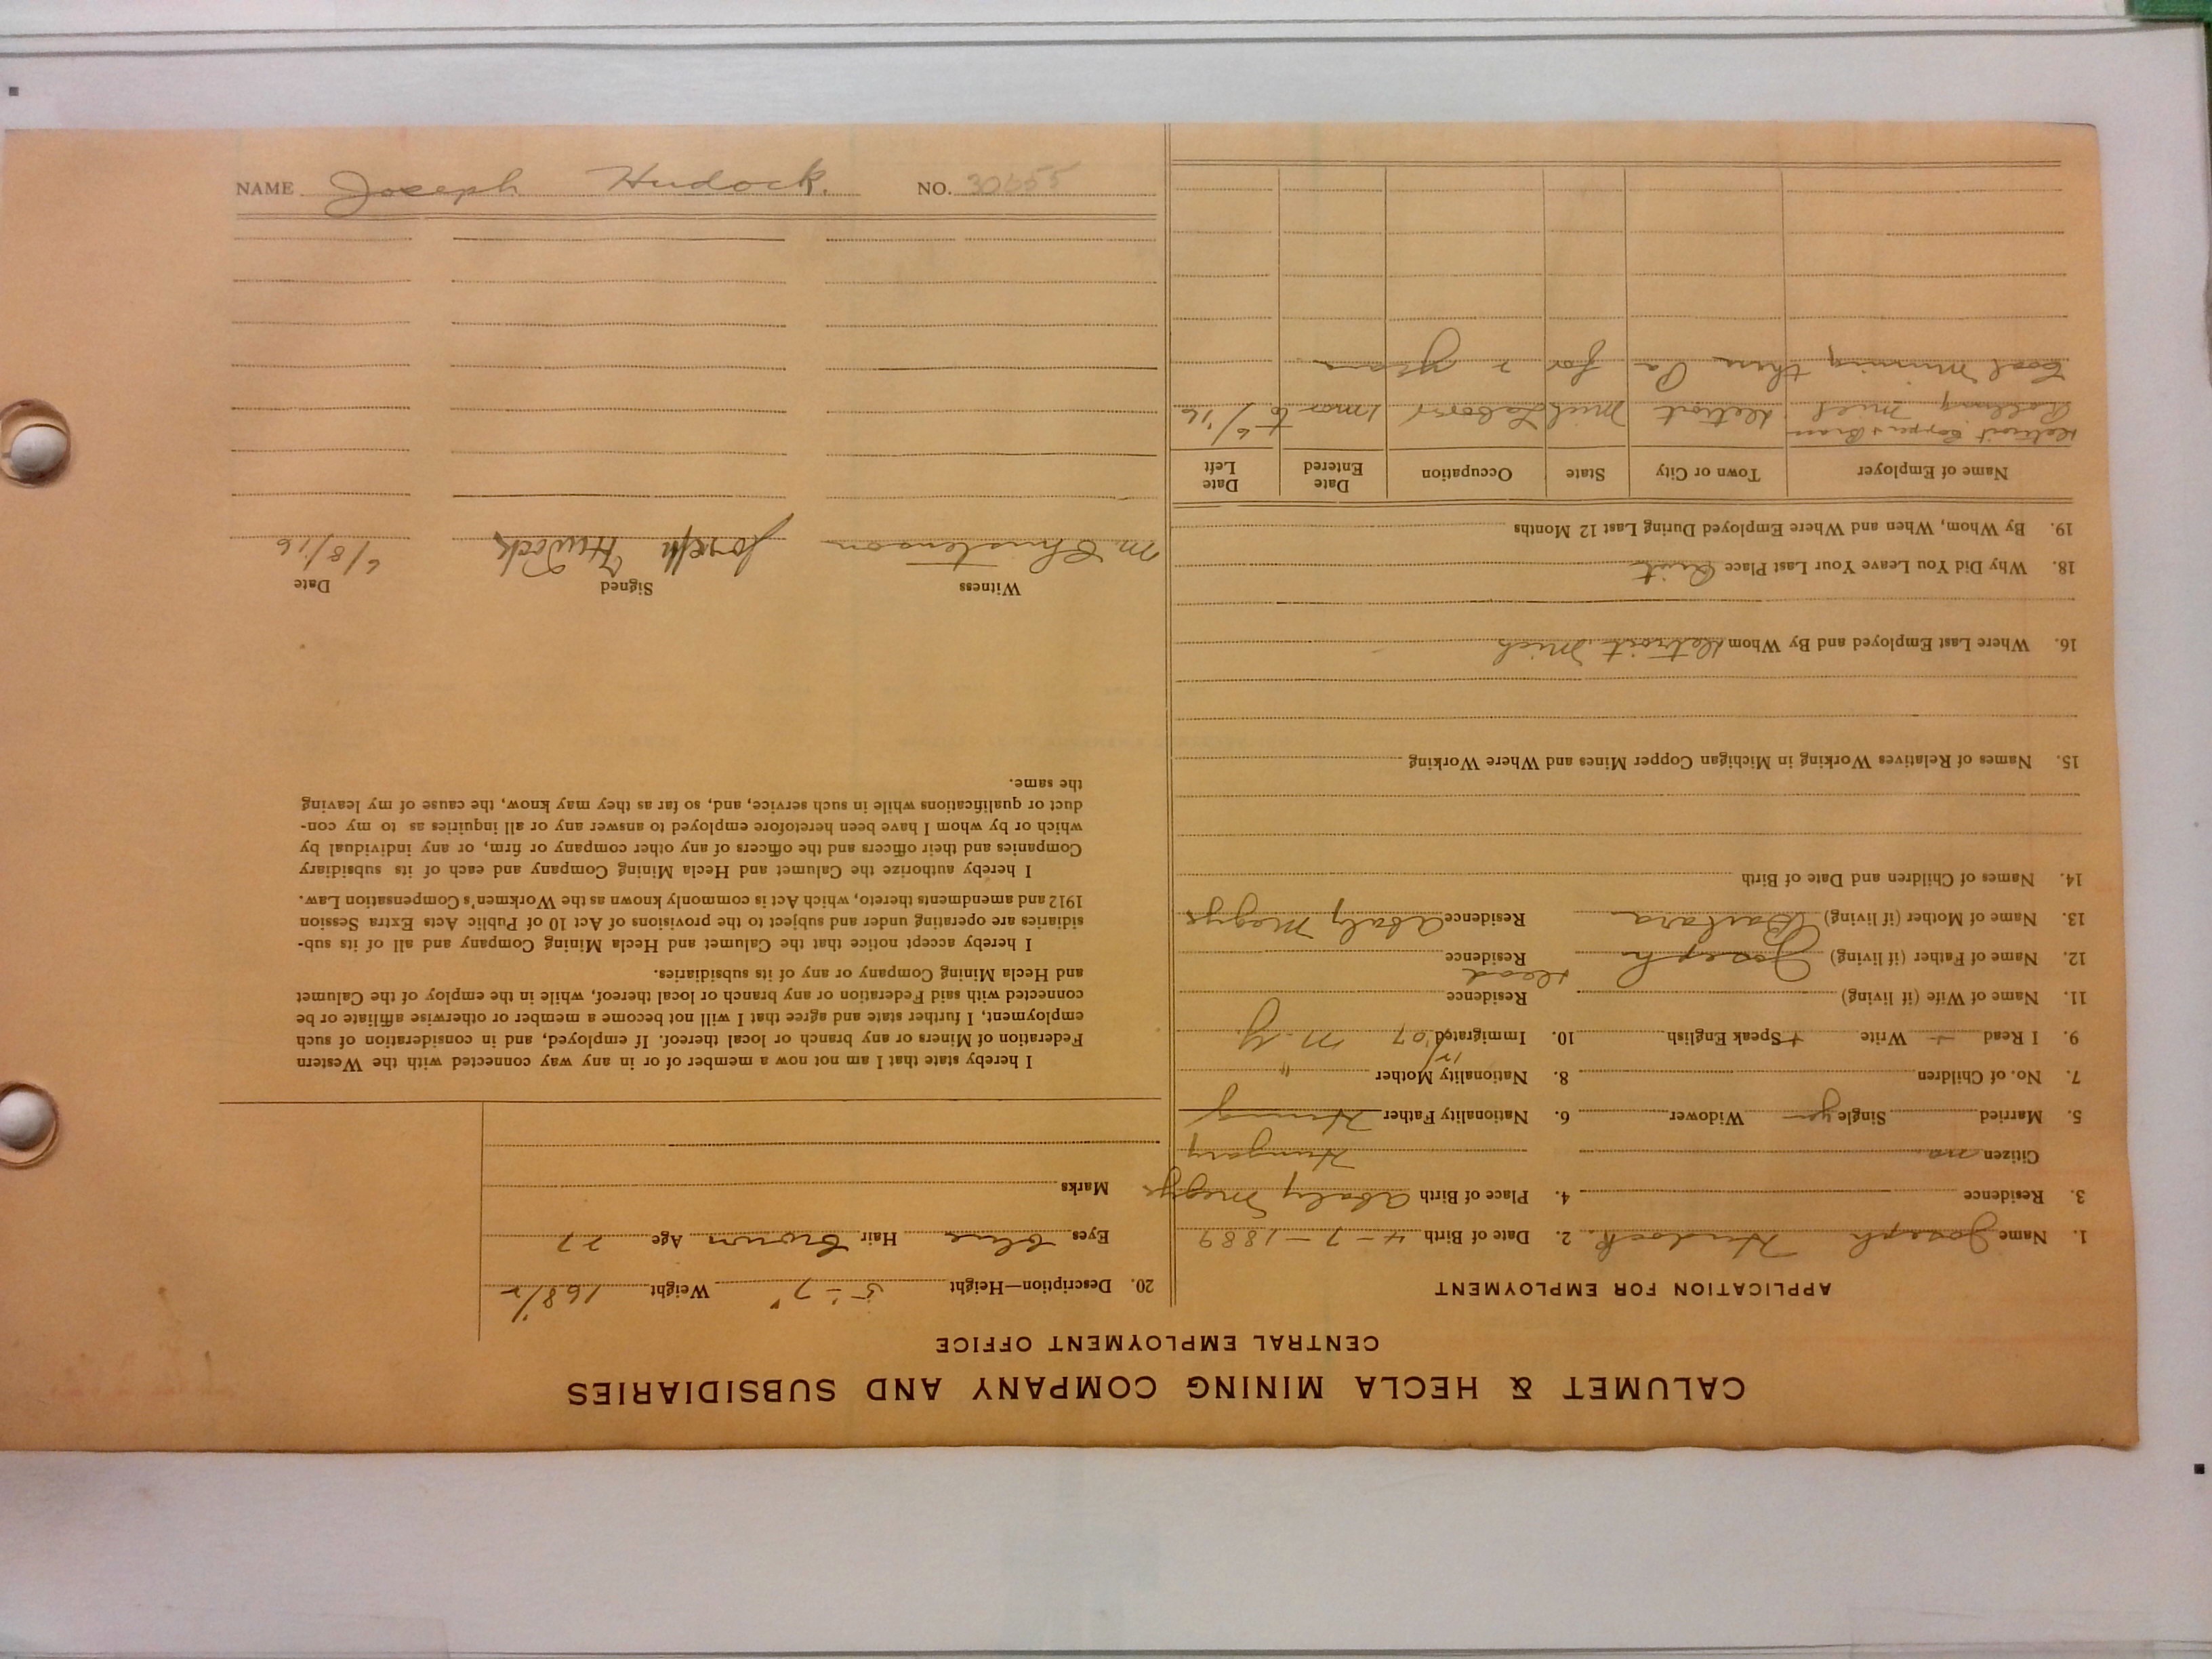 CALUMET & HECLA MINING COMPANY AND SUBSIDIARIES
CENTRAL EMPLOYMENT OFFICE
APPLICATION FOR EMPLOYMENT
1. Name Joseph Hudock. 2. Date of Birth 4-7-1889
3. Residence 4. Place of Birth Abaly Megye
Citizen no Hungary
5. Married Single yes Widower 6. Nationality Father Hung
7. No. of Children 8. Nationality Mother "
9. I Read + Write + Speak English 10. Immigrated '07 N.Y.
11. Name of Wife (if living) Residence
12. Name of Father (if living) Joseph dead Residence
13. Name of Mother (if living) Barbara Residence Abaly Megye
14. Names of Children and Date of Birth
15. Names of Relatives Working in Michigan Copper Mines and Where Working
16. Where Last Employed and By Whom Detroit Mich
18. Why Did You Leave Your Last Place Quit
19. By Whom, When and Where Employed During Last 12 Months
Name of Employer Town or City State Occupation Date Entered Date Left
Detroit Copper & Brass
Rolling Mill Detroit Mich Labor 1 mo to 6/16
Coal Mining then Pa for 2 years
20. Description—Height 5'-7" Weight 168 1/2
Eyes blue Hair brown Age 27
Marks
I hereby state that I am not now a member of or in any way connected with the Western
Federation of Miners or any branch or local thereof. If employed, and in consideration of such
employment, I further state and agree that I will not become a member or otherwise affiliate or be
connected with said Federation or any branch or local thereof, while in the employ of the Calumet
and Hecla Mining Company or any of its subsidiaries.
I hereby accept notice that the Calumet and Hecla Mining Company and all of its sub-
sidiaries are operating under and subject to the provisions of Act 10 of Public Acts Extra Session
1912 and amendments thereto, which Act is commonly known as the Workmen's Compensation Law.
I hereby authorize the Calumet and Hecla Mining Company and each of its subsidiary
Companies and their officers and the officers of any other company or firm, or any individual by
which or by whom I have been heretofore employed to answer any or all inquiries as to my con-
duct or qualifications while in such service, and, so far as they may know, the cause of my leaving
the same.
Witness Signed Date
M. Christenson Joseph Hudock 6/8/16
NAME Joseph Hudock. NO. 30655